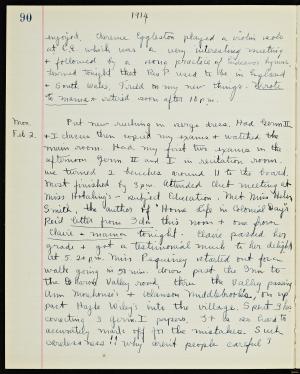 90
1914
enjoyed. Clarence Eggleston played a violin solo
at C.E. which was a very interesting meeting
+ followed by a song practice of Endeavor hymns,
learned tonight that Rev P used to be in England
+ South Wales. Tried on my new things. Wrote
to mama + retired soon after 10 p.m.
Mon.
Feb 2.
Put new ruching in serge dress. Had Germ II
+ I classes then copied my exams + watched the
main room. Had my first two exams in the
afternoon Germ II and I in recitation room.
We turned 2 benches around 11 to its board.
Most finished by 3 pm. Attended Club meeting at
Miss Hotaling's - subject Education. Met Miss Helen
Smith, the author of Home Life in Colonial Days
Rec'd letter from Ida this noon + one from
Claire + mama tonight. Claire passed her
grade + got a testimonial much to her delight
at 5.20 pm Miss Pequiney started out for a
walk going in 50 min. down past the Inn to
the Sharon Valley road, thru the Valley passing
Ann Monahan's + Clanson Middlebrooks, on up
past Hazle Wiley's into the village. Spent 3 hrs
correcting 3 Germ. I papers. It is so hard to
accurately mark off for the mistakes. Such
carelessness!! Why aren't people careful?